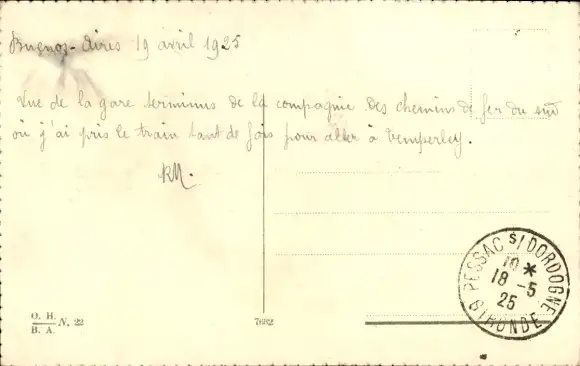 Buenos-Aires 19 avril 1925
Vue de la gare terminus de la compagnie des chemins de fer du sud
où j'ai pris le train tant de fois pour aller à Temperley.
RM.
PESSAC S/ DORDOGNE
10 *
18 - 5
25
GIRONDE
O. H.
B. A.
N. 22
7682